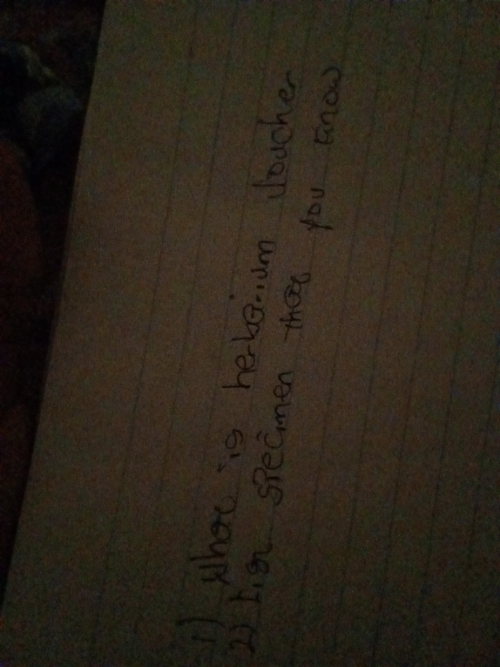 1) What is herbarium Voucher
2) List specimen that you know